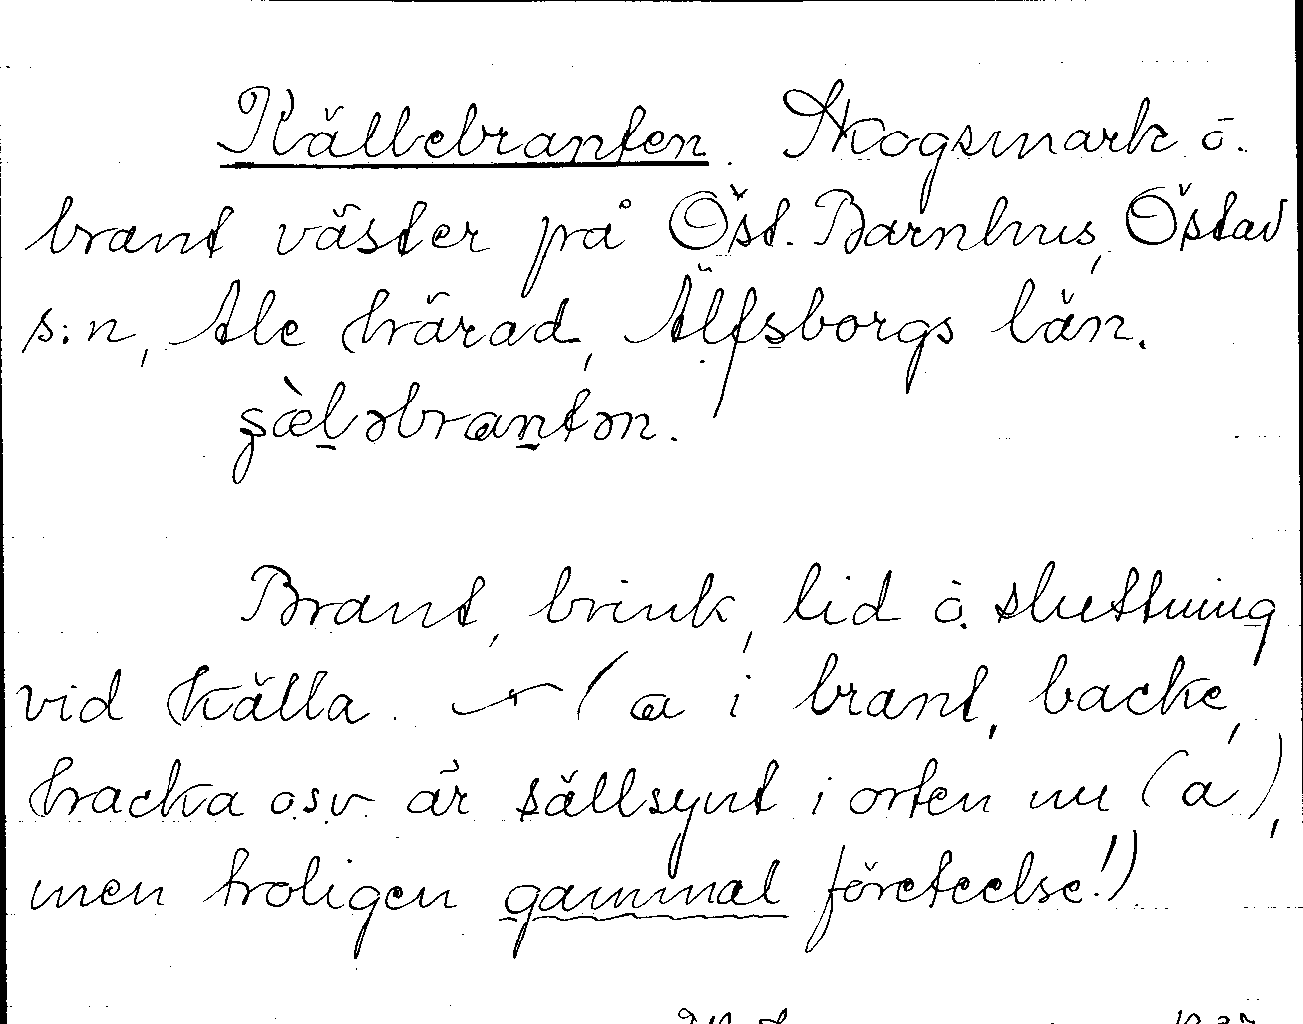 Källebranten. Skogsmark o.
brant väster på Öst. Barnhus, Östad
s:n, Ale härad, Älfsborgs län.
s̨æ̀l̠əbrant̠ən.
Brant, brink, lid o. sluttning
vid källa. (a i brant, backe,
backa osv. är sällsynt i orten nu (a),
men troligen gammal företeelse!)